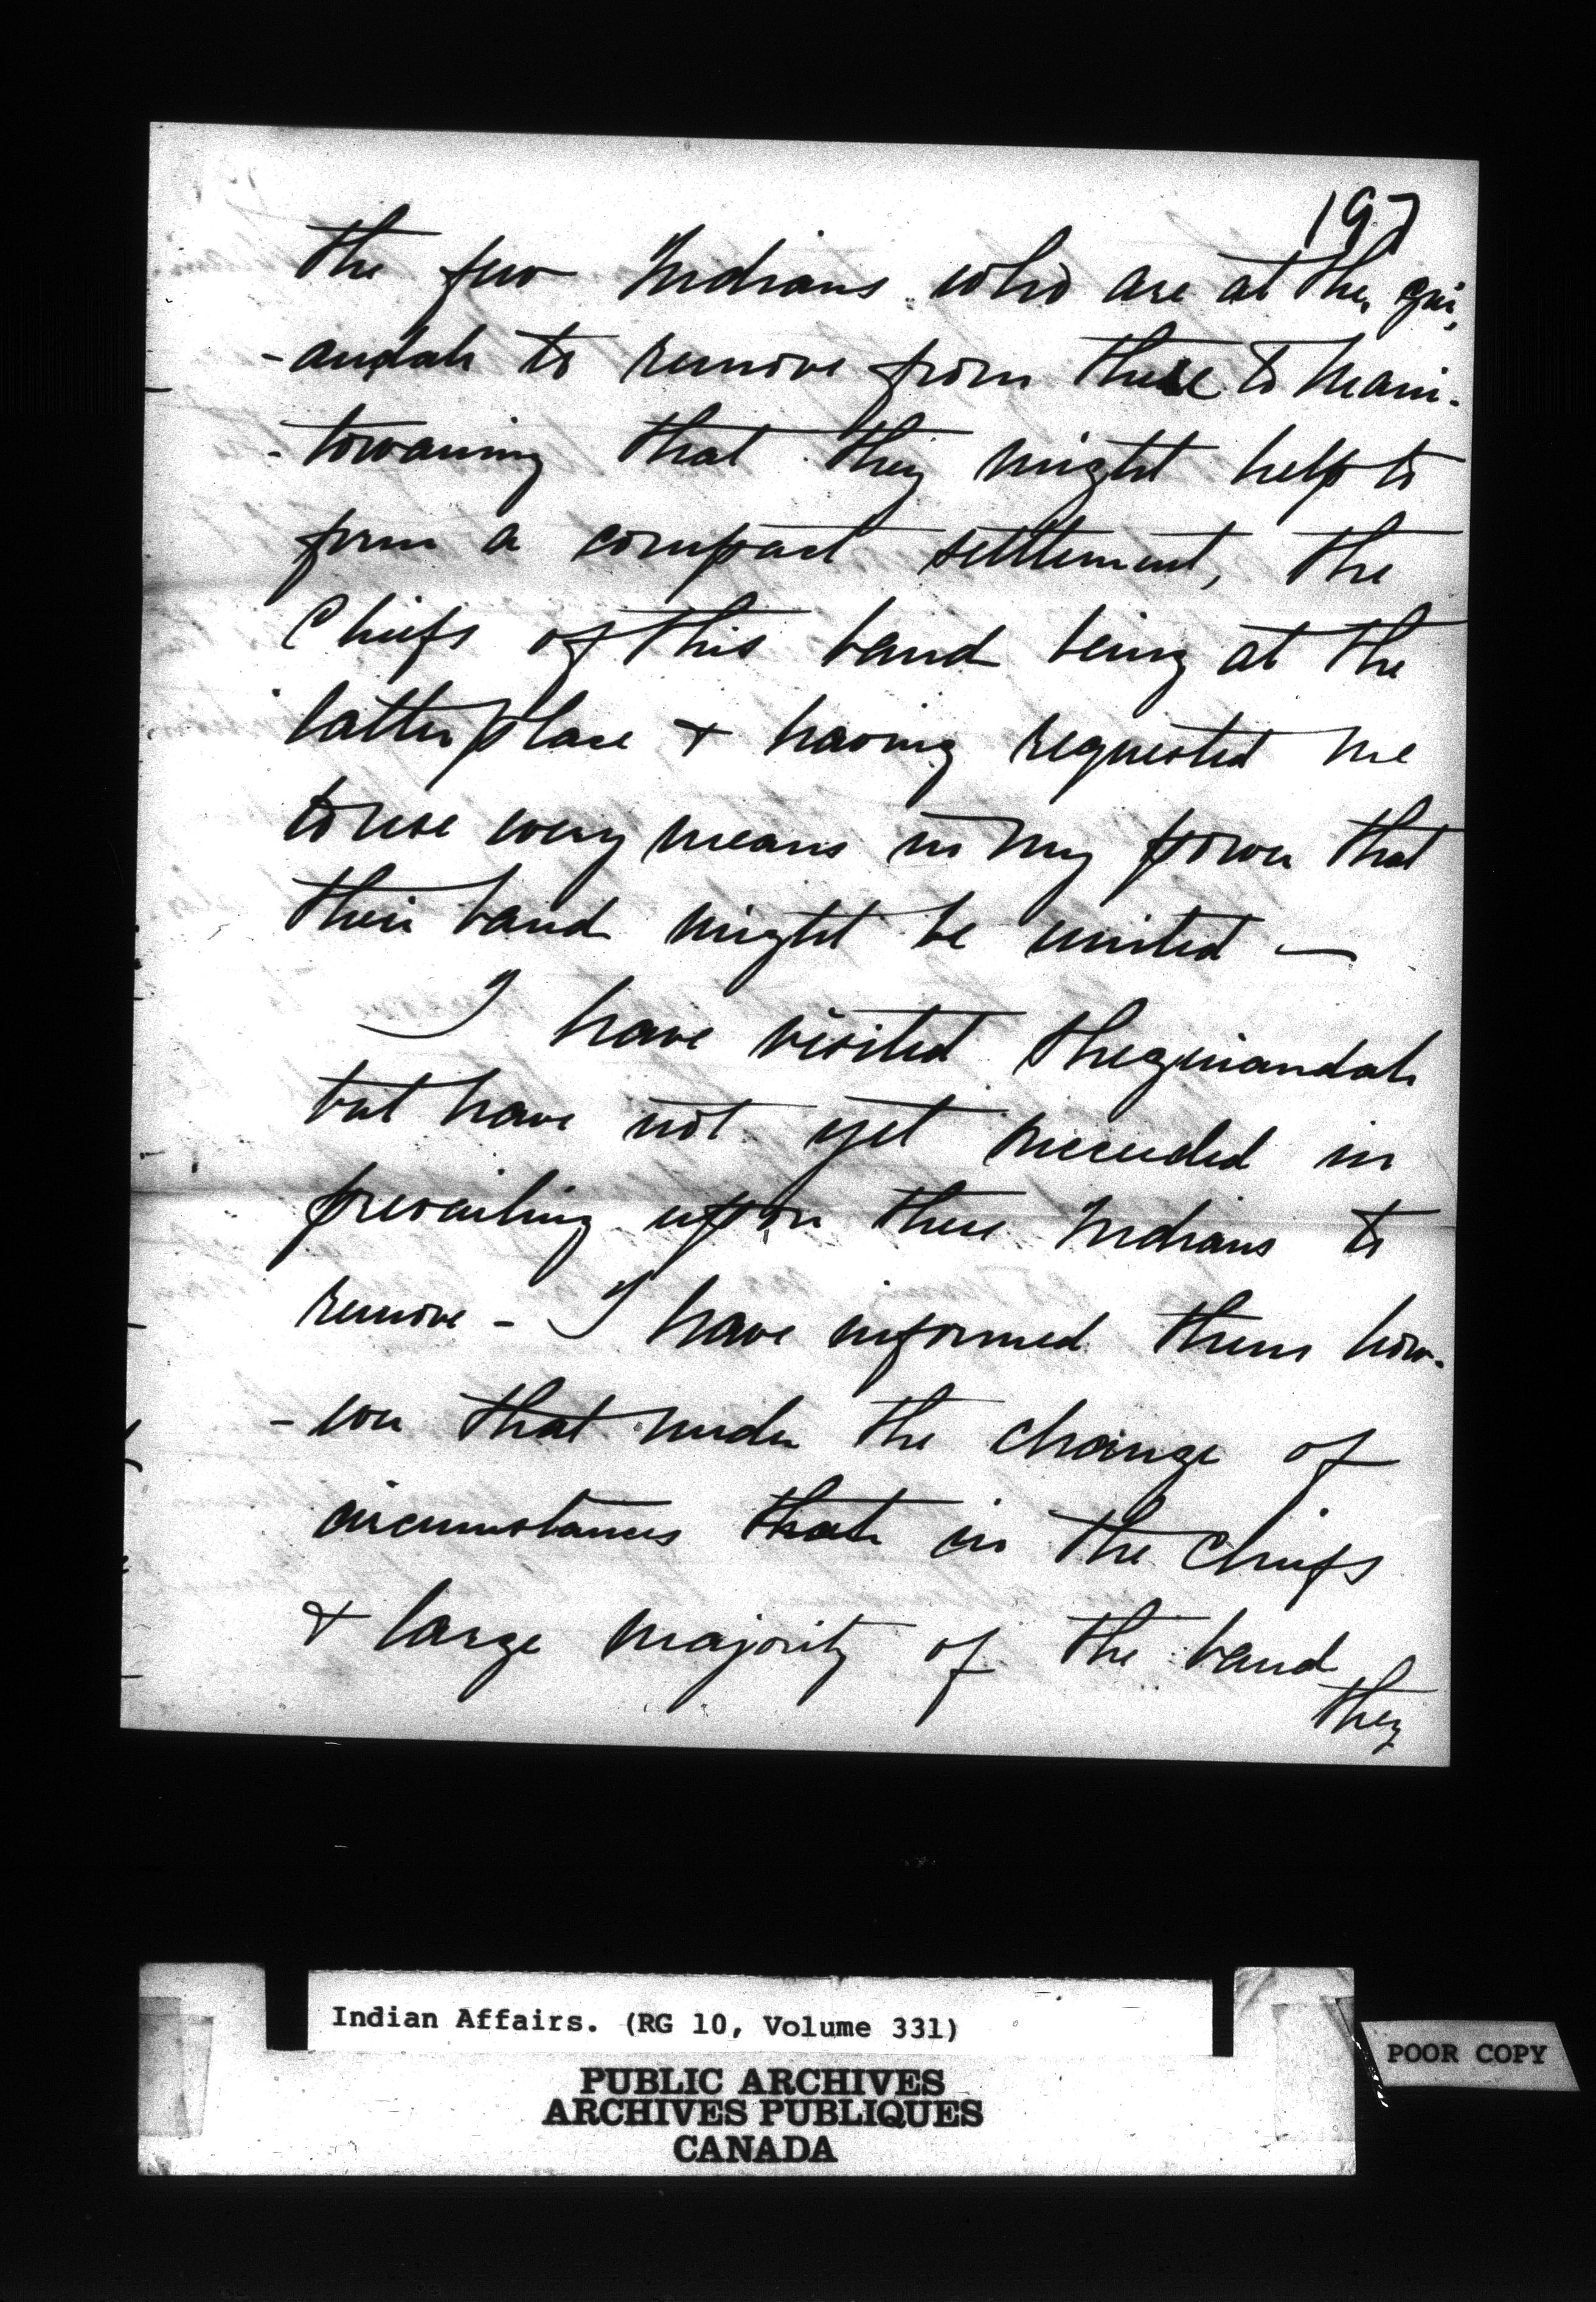 197
the few Indians who are at Shegui,
-andah to remove from there to Mani-
-towaning that they might help to
form a compact settlement, the
Chiefs of this band being at the
latter place & having requested me
to use every means in my power that
their band might be united —
I have visited Sheguiandah
but have not yet succeeded in
prevailing upon these Indians to
remove - I have informed them how-
-ever that under the change of
circumstances that in the Chiefs
& large majority of the band
they
Indian Affairs. (RG 10, Volume 331)
PUBLIC ARCHIVES
ARCHIVES PUBLIQUES
CANADA
POOR COPY